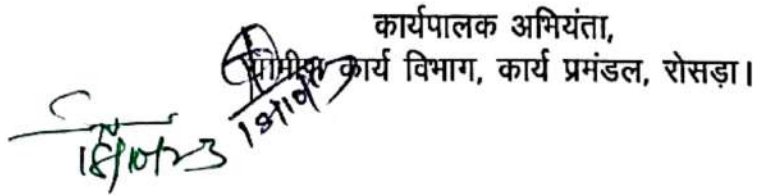 कार्यपालक अभियंता,
ग्रामीण कार्य विभाग, कार्य प्रमंडल, रोसड़ा।
18/10/23